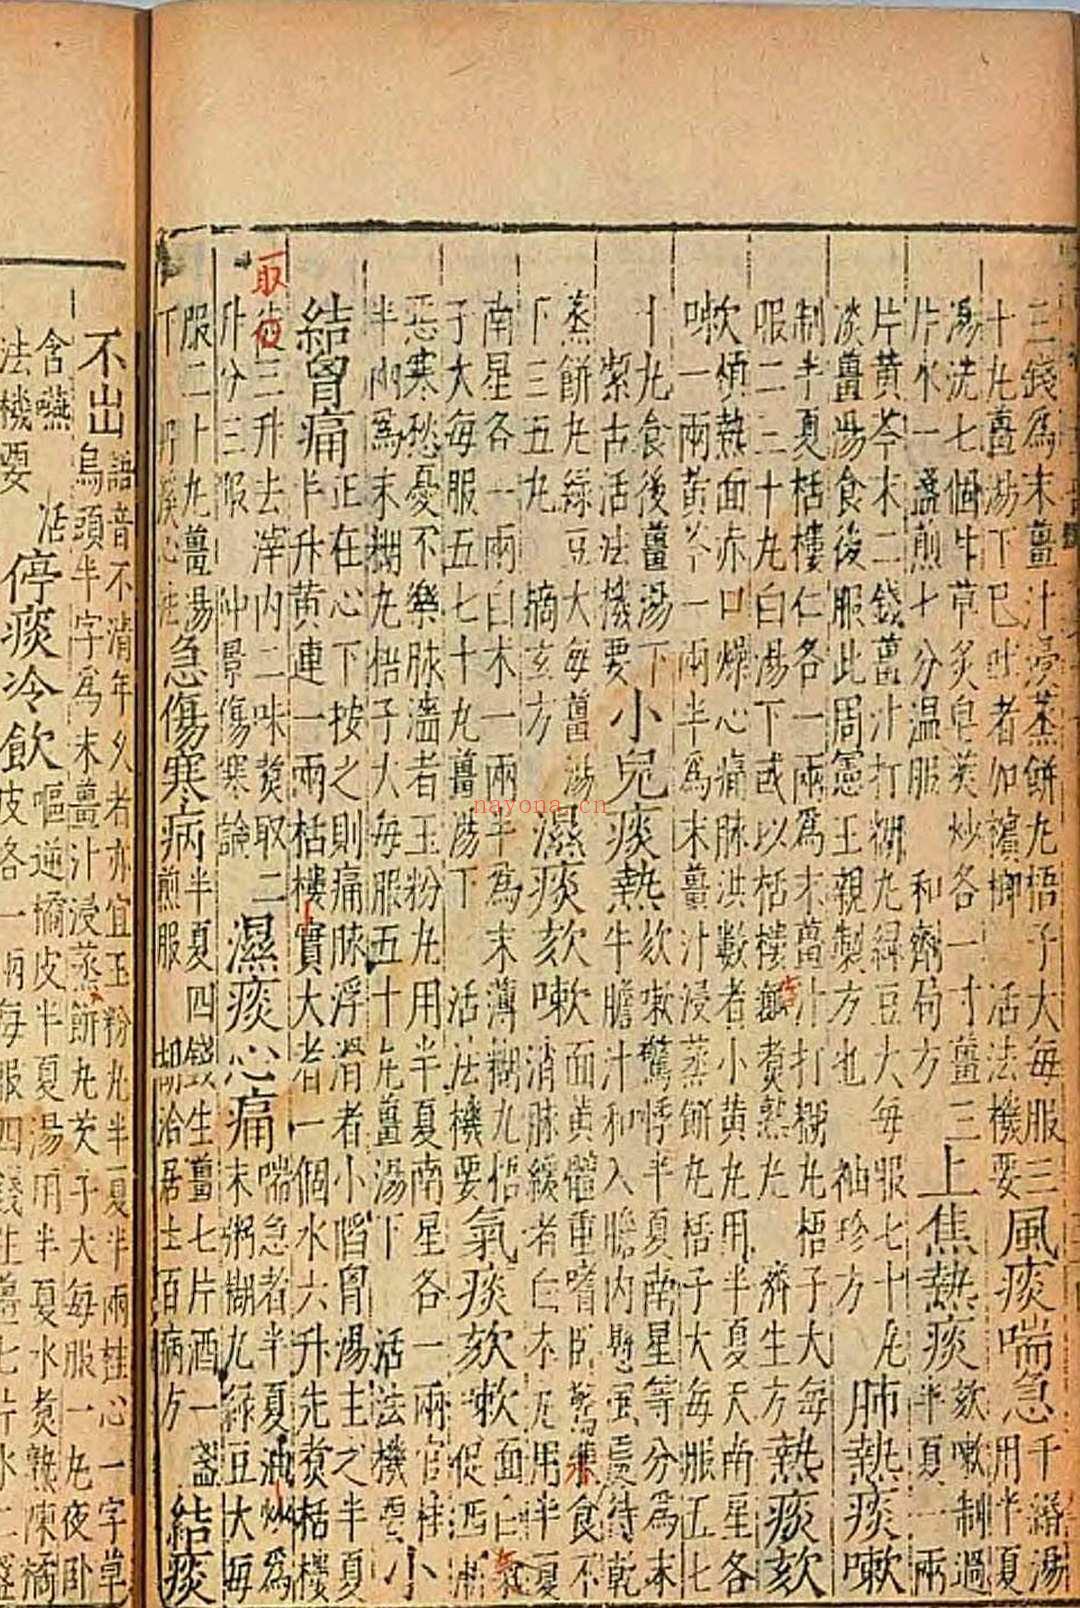 三錢為末薑汁浸蒸餅丸梧子大每服三
十丸薑湯下巳吐者加檳榔 活法機要
風痰喘急
千緡湯
用半夏
湯洗七個甘草炙皂莢炒各一寸薑三
片水一盞煎七分温服 和劑局方
上焦熱痰
欬嗽制過
半夏一兩
片黃芩末二錢薑汁打糊丸綠豆大每服七十丸
淡薑湯食後服此周憲王親製方也 袖珍方
肺熱痰嗽
制半夏栝樓仁各一兩為末薑汁打糊丸梧子大每
服二三十丸白湯下或以栝樓瓤煮熟丸 濟生方
熱痰欬
嗽
煩熱面赤口燥心痛脉洪數者小黃丸用半夏天南星各
一兩黃芩一兩半為末薑汁浸蒸餅丸梧子大每服五七
十丸食後薑湯下
潔古活法機要
小兒痰熱
欬嗽驚悸半夏南星等分為末
牛膽汁和入膽內懸風處待乾
蒸餅丸綠豆大每薑湯
下三五丸 摘玄方
濕痰欬嗽
面黃體重嗜臥驚兼食不
消脉緩者白朮丸用半夏
南星各一兩白朮一兩半為末薄糊丸梧
子大每服五七十丸薑湯下 活法機要
氣痰欬嗽
面白氣
促洒淅
惡寒愁憂不樂脉濇者玉粉丸用半夏南星各一兩官桂
半兩為末糊丸梧子大每服五十丸薑湯下 活法機要
小
結胷痛
正在心下按之則痛脉浮滑者小陷胷湯主之半夏
半升黃連一兩栝樓實大者一個水六升先煮栝樓
取三升去滓內二味煮取二
升分三服 仲景傷寒論
濕痰心痛
喘急者半夏油炒為
末粥糊丸綠豆大每
服二十丸薑湯
下 丹溪心法
急傷寒病
半夏四錢生薑七片酒一盞
煎服 胡洽居士百病方
結痰
不出
語音不清年久者亦宜玉粉丸半夏半兩桂心一字草
烏頭半字為末薑汁浸蒸餅丸芡子大每服一丸夜臥
含嚥 活
法機要
停痰冷飲
嘔逆橘皮半夏湯用半夏水煮熟陳橘
皮各一兩每服四錢生薑七片水二盞
nayona.cn